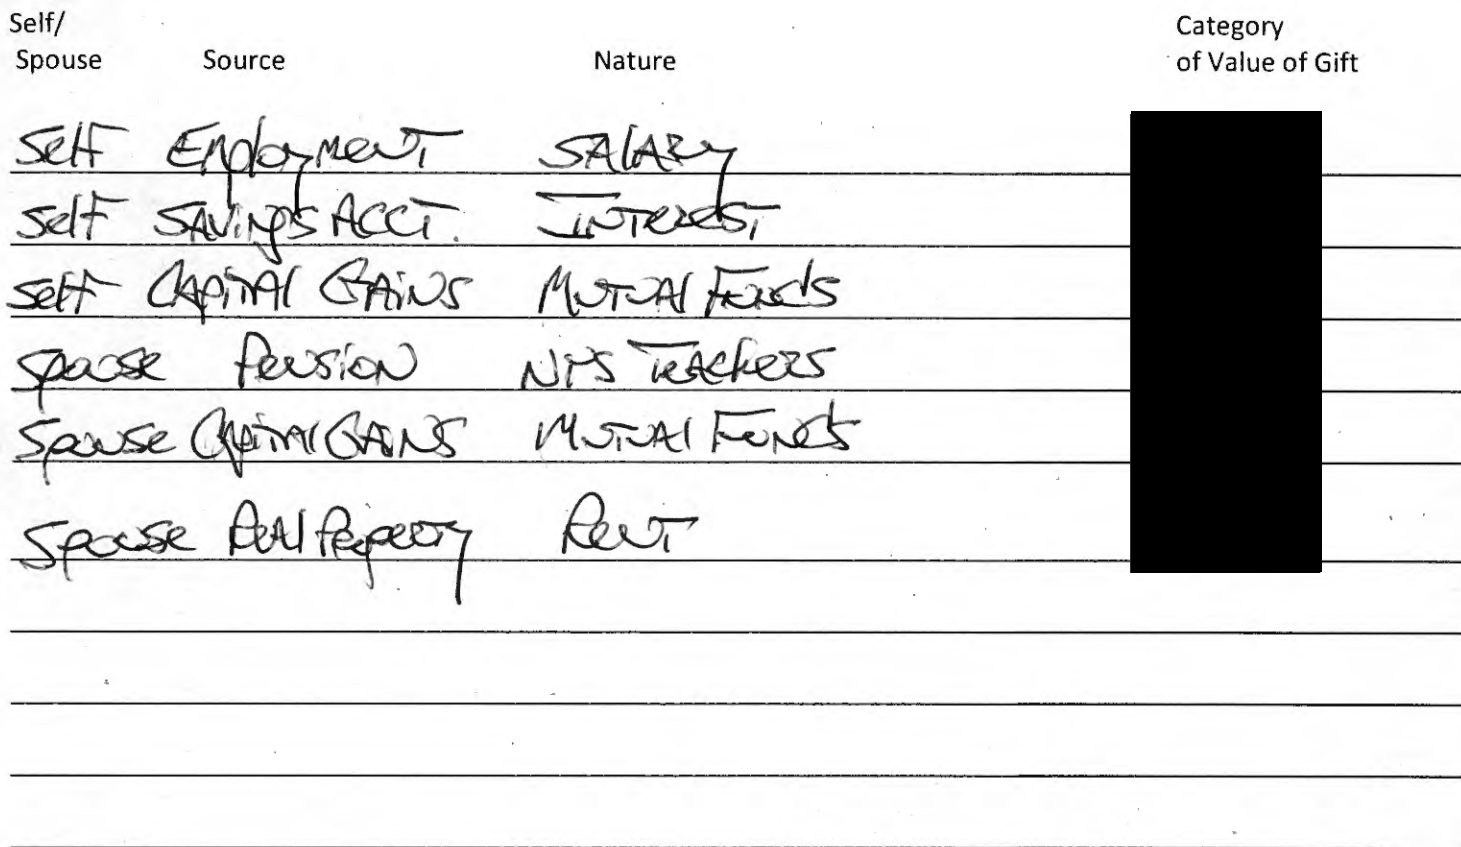 Self/ Category
Spouse Source Nature of Value of Gift
Self Employment SALARy
Self SAVINgS ACCT. INTEREST
Self CAPiTAl GAiNS MUTUAl FUNds
Spouse PeNSiON NYS TeAcheRS
Spouse CApiTAl GAINS MUTUAl FUNdS
Spouse ReAl PRopeRTy ReNT